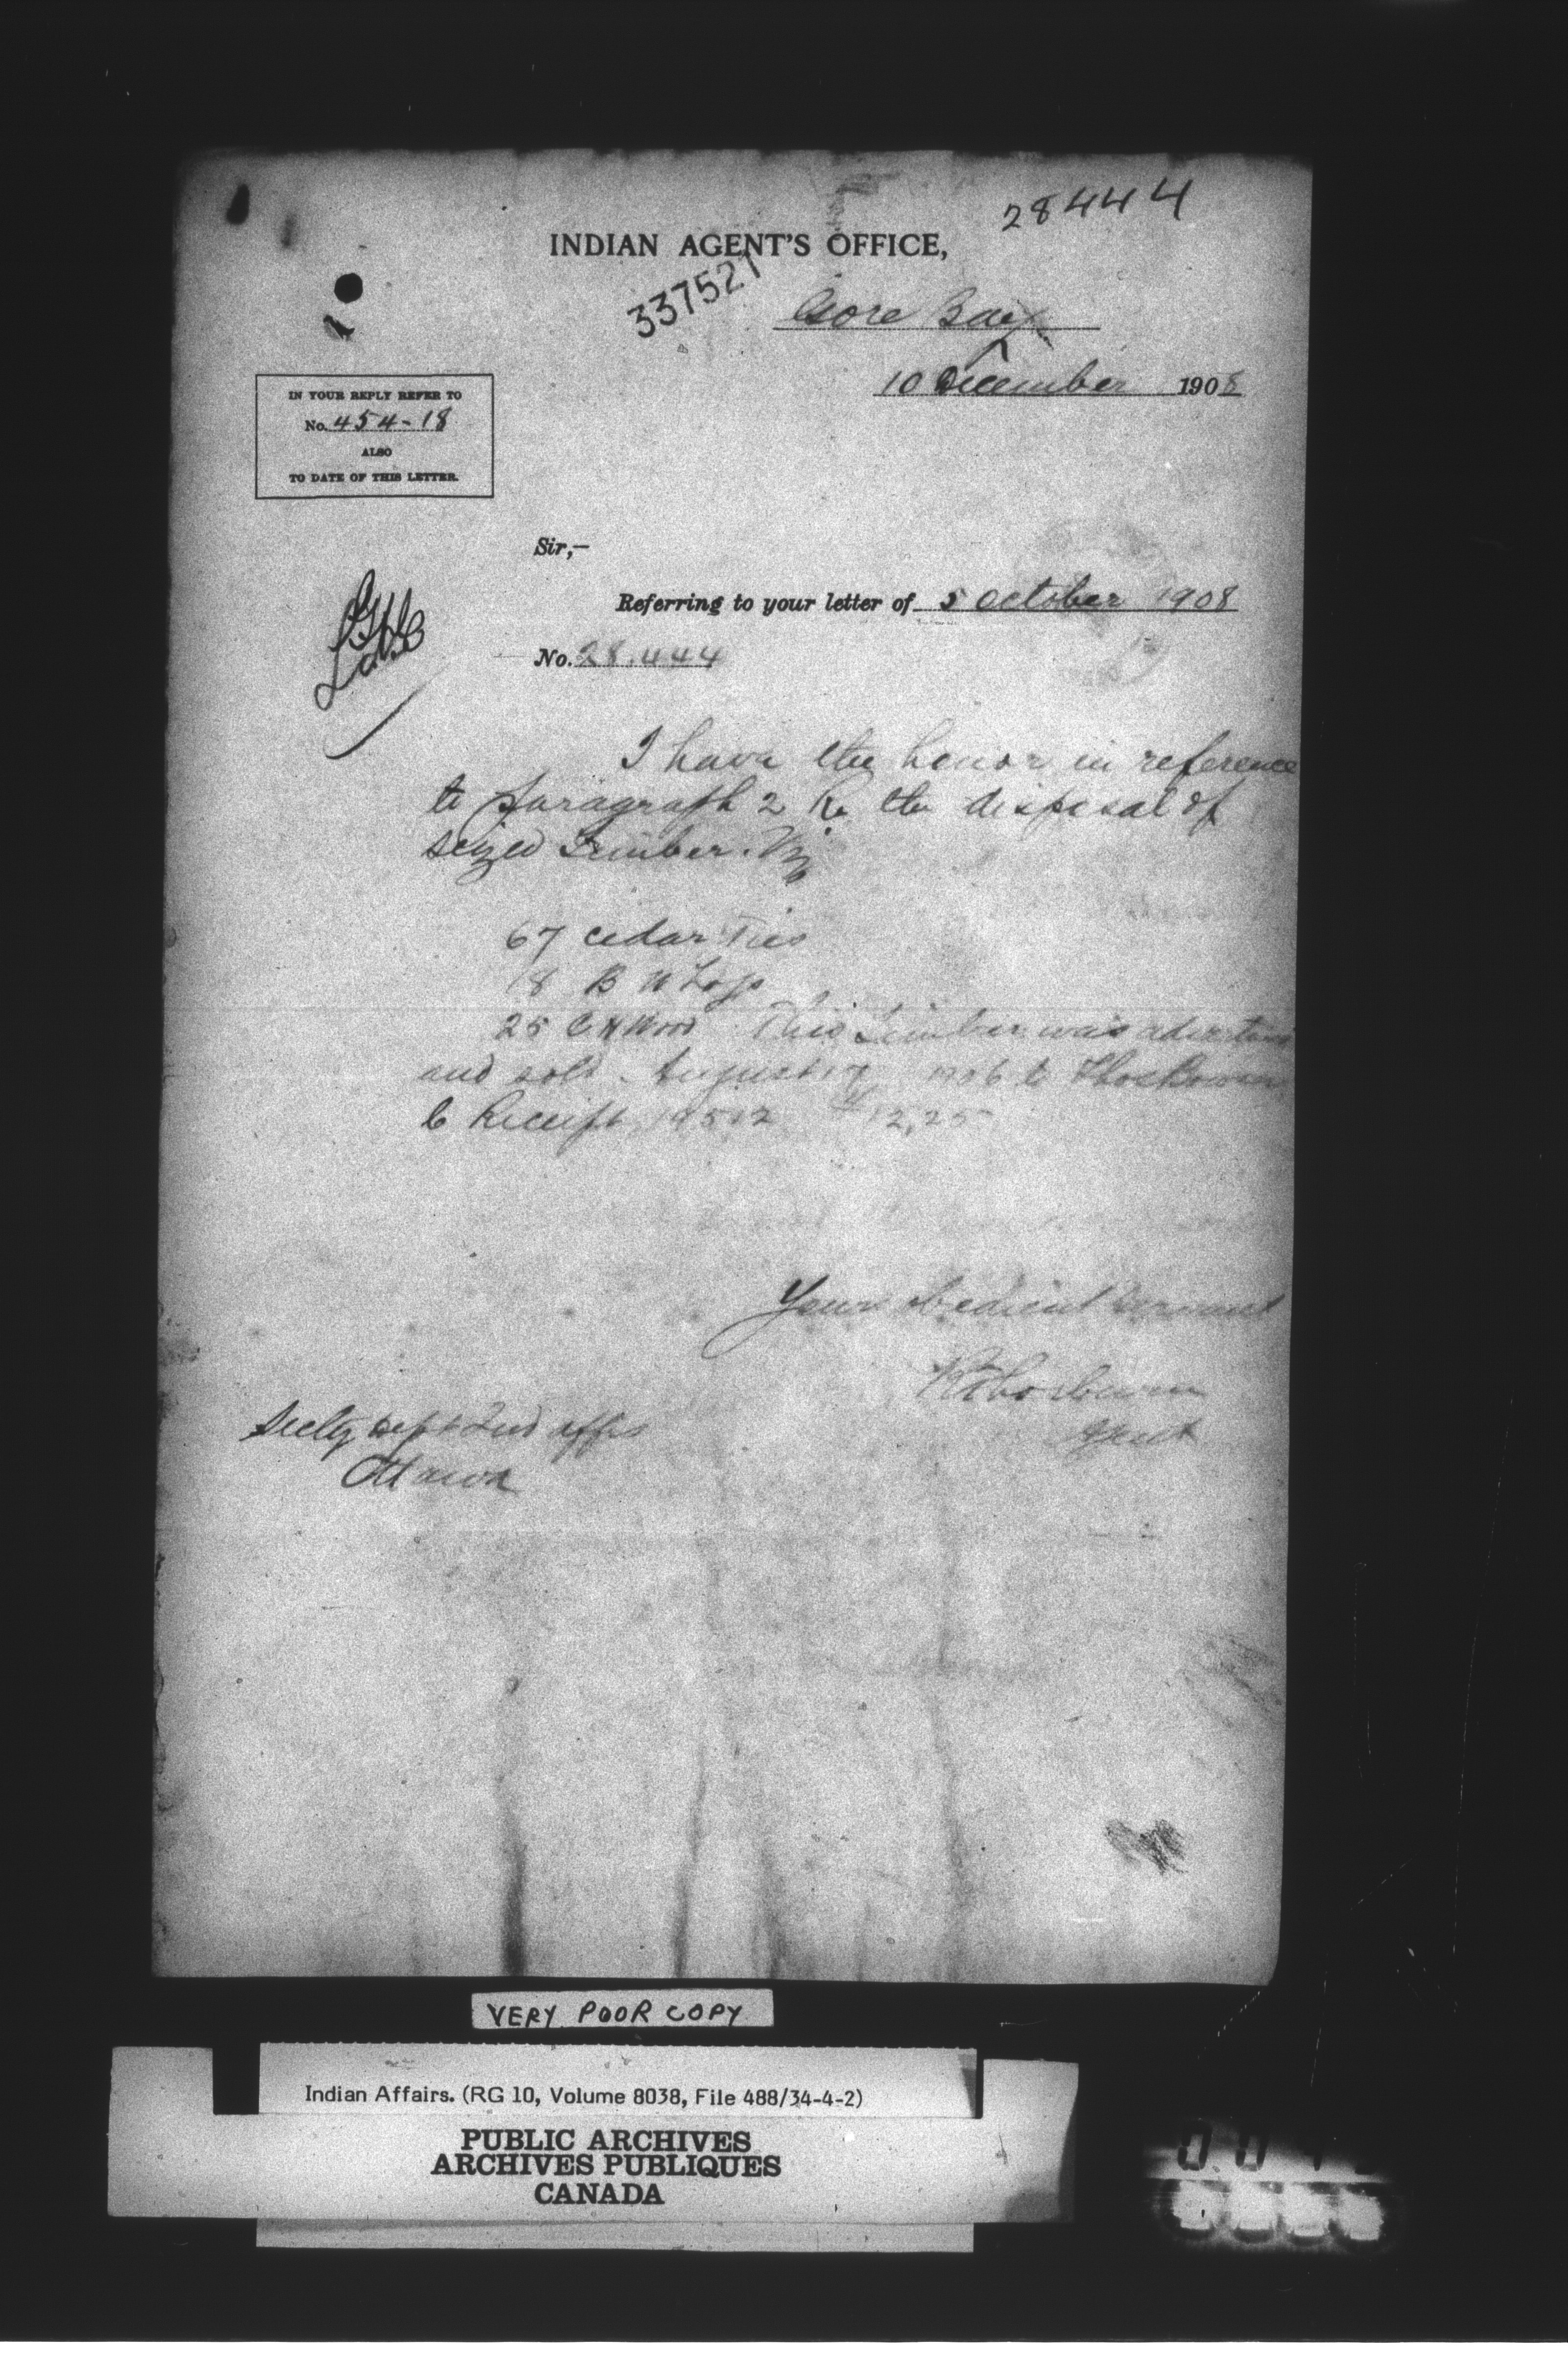 28444
INDIAN AGENT'S OFFICE,
337521
Gore Bay
10 December 1908
IN YOUR REPLY REFER TO
No. 454-18
ALSO
TO DATE OF THIS LETTER.
Sir,—
Referring to your letter of 5 October 1908
No. 28.444
I have the honor in reference
to paragraph 2 Re the disposal of
seized Timber. Viz
67 cedar Ties
18 B W Logs
25 C Wood This Timber was
and sold August 17 1906 to Thos
Receipt 19512 $12,25
Your obedient Servant
Agent
Secty Dept Ind Affrs
Ottawa
VERY POOR COPY
Indian Affairs. (RG 10, Volume 8038, File 488/34-4-2)
PUBLIC ARCHIVES
ARCHIVES PUBLIQUES
CANADA